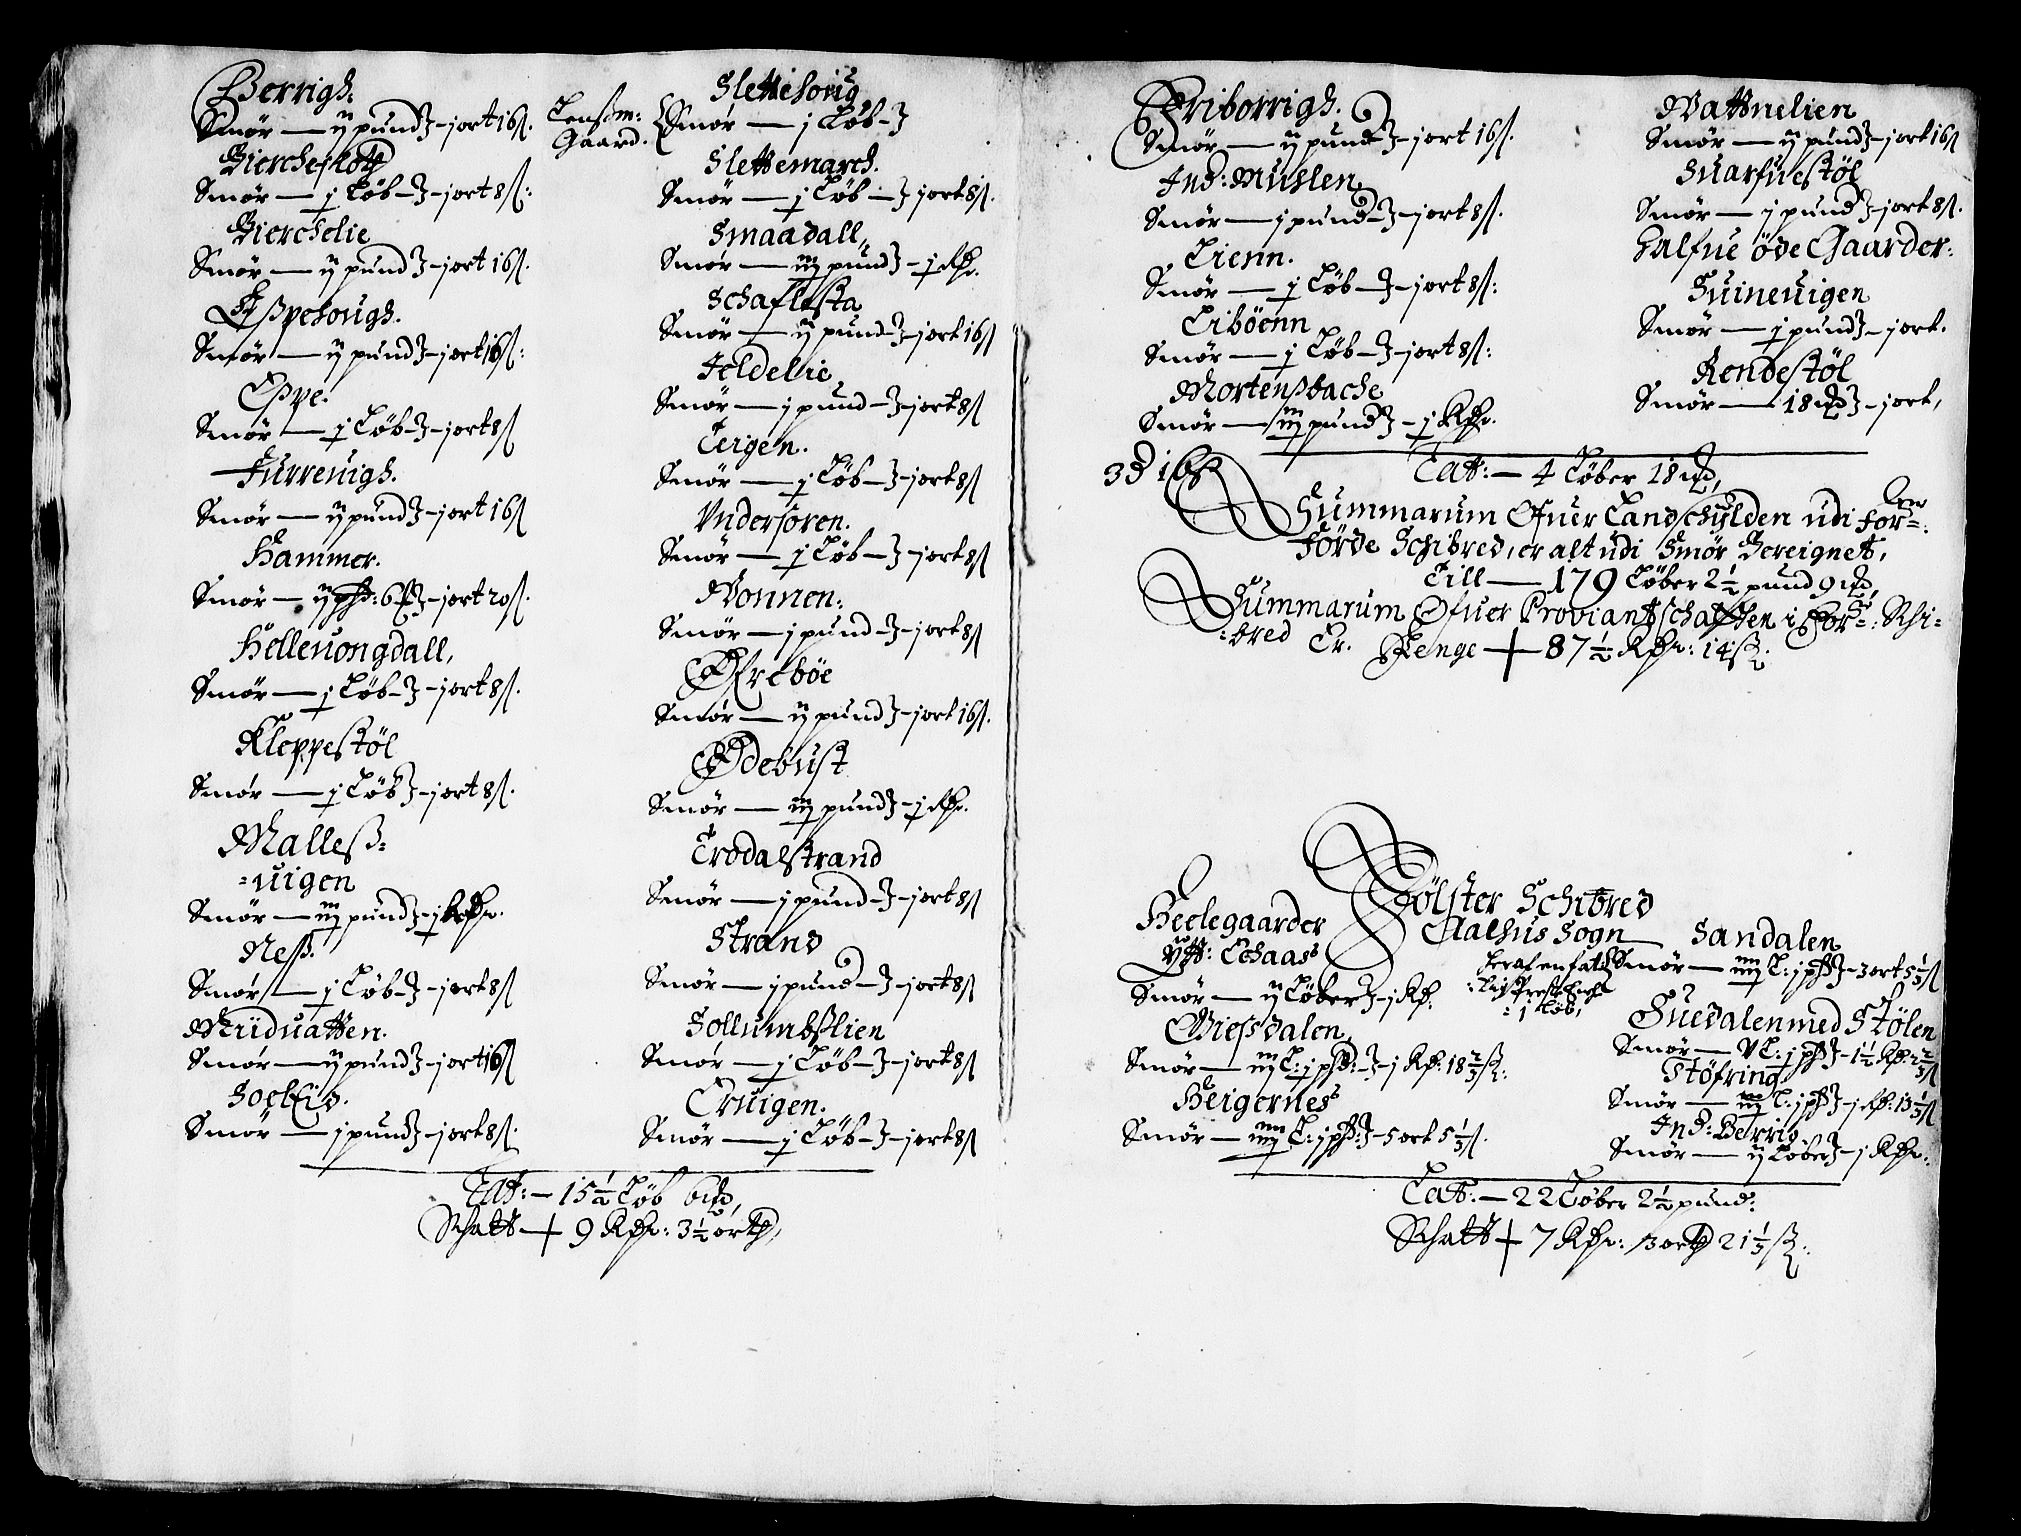 Berrigh.
Smør — ij pund — j ort 16 ß.
Biercheflott
Smør — j Løb — j ort 8 ß:
Bierchelie
Smør — ij pund — j ort 16 ß.
Eßpehougs.
Smør — ij pund — j ort 16 ß:
Eßpe.
Smør — j Løb — j ort 8 ß
Furreuigh.
Smør — ij pund — j ort 16 ß
Hammer.
Smør — ij pd: 6 — j ort 20 ß.
Helleuongdall,
Smør — j Løb — j ort 8 ß.
Kleppestøl
Smør — j Løb — j ort 8 ß.
Malleß=
=uigen
Smør — iij pund — j Rdr.
Neß.
Smør — j Løb — j ort 8 ß
Miiduatten.
Smør — ij pund — j ort 16 ß
Soeleid.
Smør — j pund — j ort 8 ß.
Lenßm:
Gaard.
Slettehoug
Smør — j Løb
Slettemarch.
Smør — j Løb — j ort 8 ß.
Smaadall,
Smør — iij pund — j Rdr.
Schaflesta
Smør — ij pund — j ort 16 ß
Jeldelie
Smør — j pund — j ort 8 ß
Teigen.
Smør — j Løb — j ort 8 ß
Vndersøren.
Smør — j Løb — j ort 8 ß
Wonnen:
Smør — j pund — j ort 8 ß
Øfrebøe
Smør — ij pund — j ort 16 ß.
Ødebust
Smør — iij pund — j Rdr.
Trodalstrand
Smør — j pund — j ort 8 ß
Strand
Smør — j pund — j ort 8 ß
Sollumbßlien
Smør — j Løb — j ort 8 ß
Eruigen.
Smør — j Løb — j ort 8 ß
Lat: — 15 ½ Løb 6
Schatt — 9 Rdr: 3 ½ ort,
Friborrigh.
Smør — ij pund — j ort 16 ß.
Ind: Muslen
Smør — j pund — j ort 8 ß.
Lienn.
Smør — j Løb — j ort 8 ß:
Liböenn
Smør — j Løb — j ort 8 ß:
Mortenßbache
Smør — iij pund — j Rdr.
Wattnelien
Smør — ij pund — j ort 16 ß
Suarfuestøl
Smør — j pund — j ort 8 ß.
Halfue øde Gaarder:
Suineuigen
Smør — j pund — j ort.
Rendestøl
Smør — 18 — j ort,
Lat: — 4 Løber 18
3 16 ß
Summarum Ofuer Landschylden udi For=:
Førde Schibred, er alt udi Smør Bereignet,
Till — 179 Løber 2 ½ pund 9
Summarum Ofuer Proviantschatten i For=: Schi=
=bred Er. Penge — 87 ½ Rdr: 14 ß:
Jølster Schibred
Aalhus Sogn
Heelegaarder
Ytt: Echaas
Smør — ij Løber — j Rdr.
j Løb,
Giesdalen,
Smør — iij L: j pd: — j Rdr: 18 2/3 ß:
Heigernes
Smør — iiij L: j pd: — 5 ort 5 1/3 ß.
Sandalen
Smør — iiij L: j pd — 3 ort 5 1/3 ß
Huedalen med Stølen
Smør — V L: j pd — 1 ½ Rdr: 2 2/3 ß
Støfring
Smør — iij L: j pd — j Rdr: 13 1/3 ß
Ind: Berrig
Smør — ij Løber — j Rdr.:
Lat: — 22 Løber 2 ½ pund:
Schatt — 7 Rdr: 3 ort 21 1/3 ß: